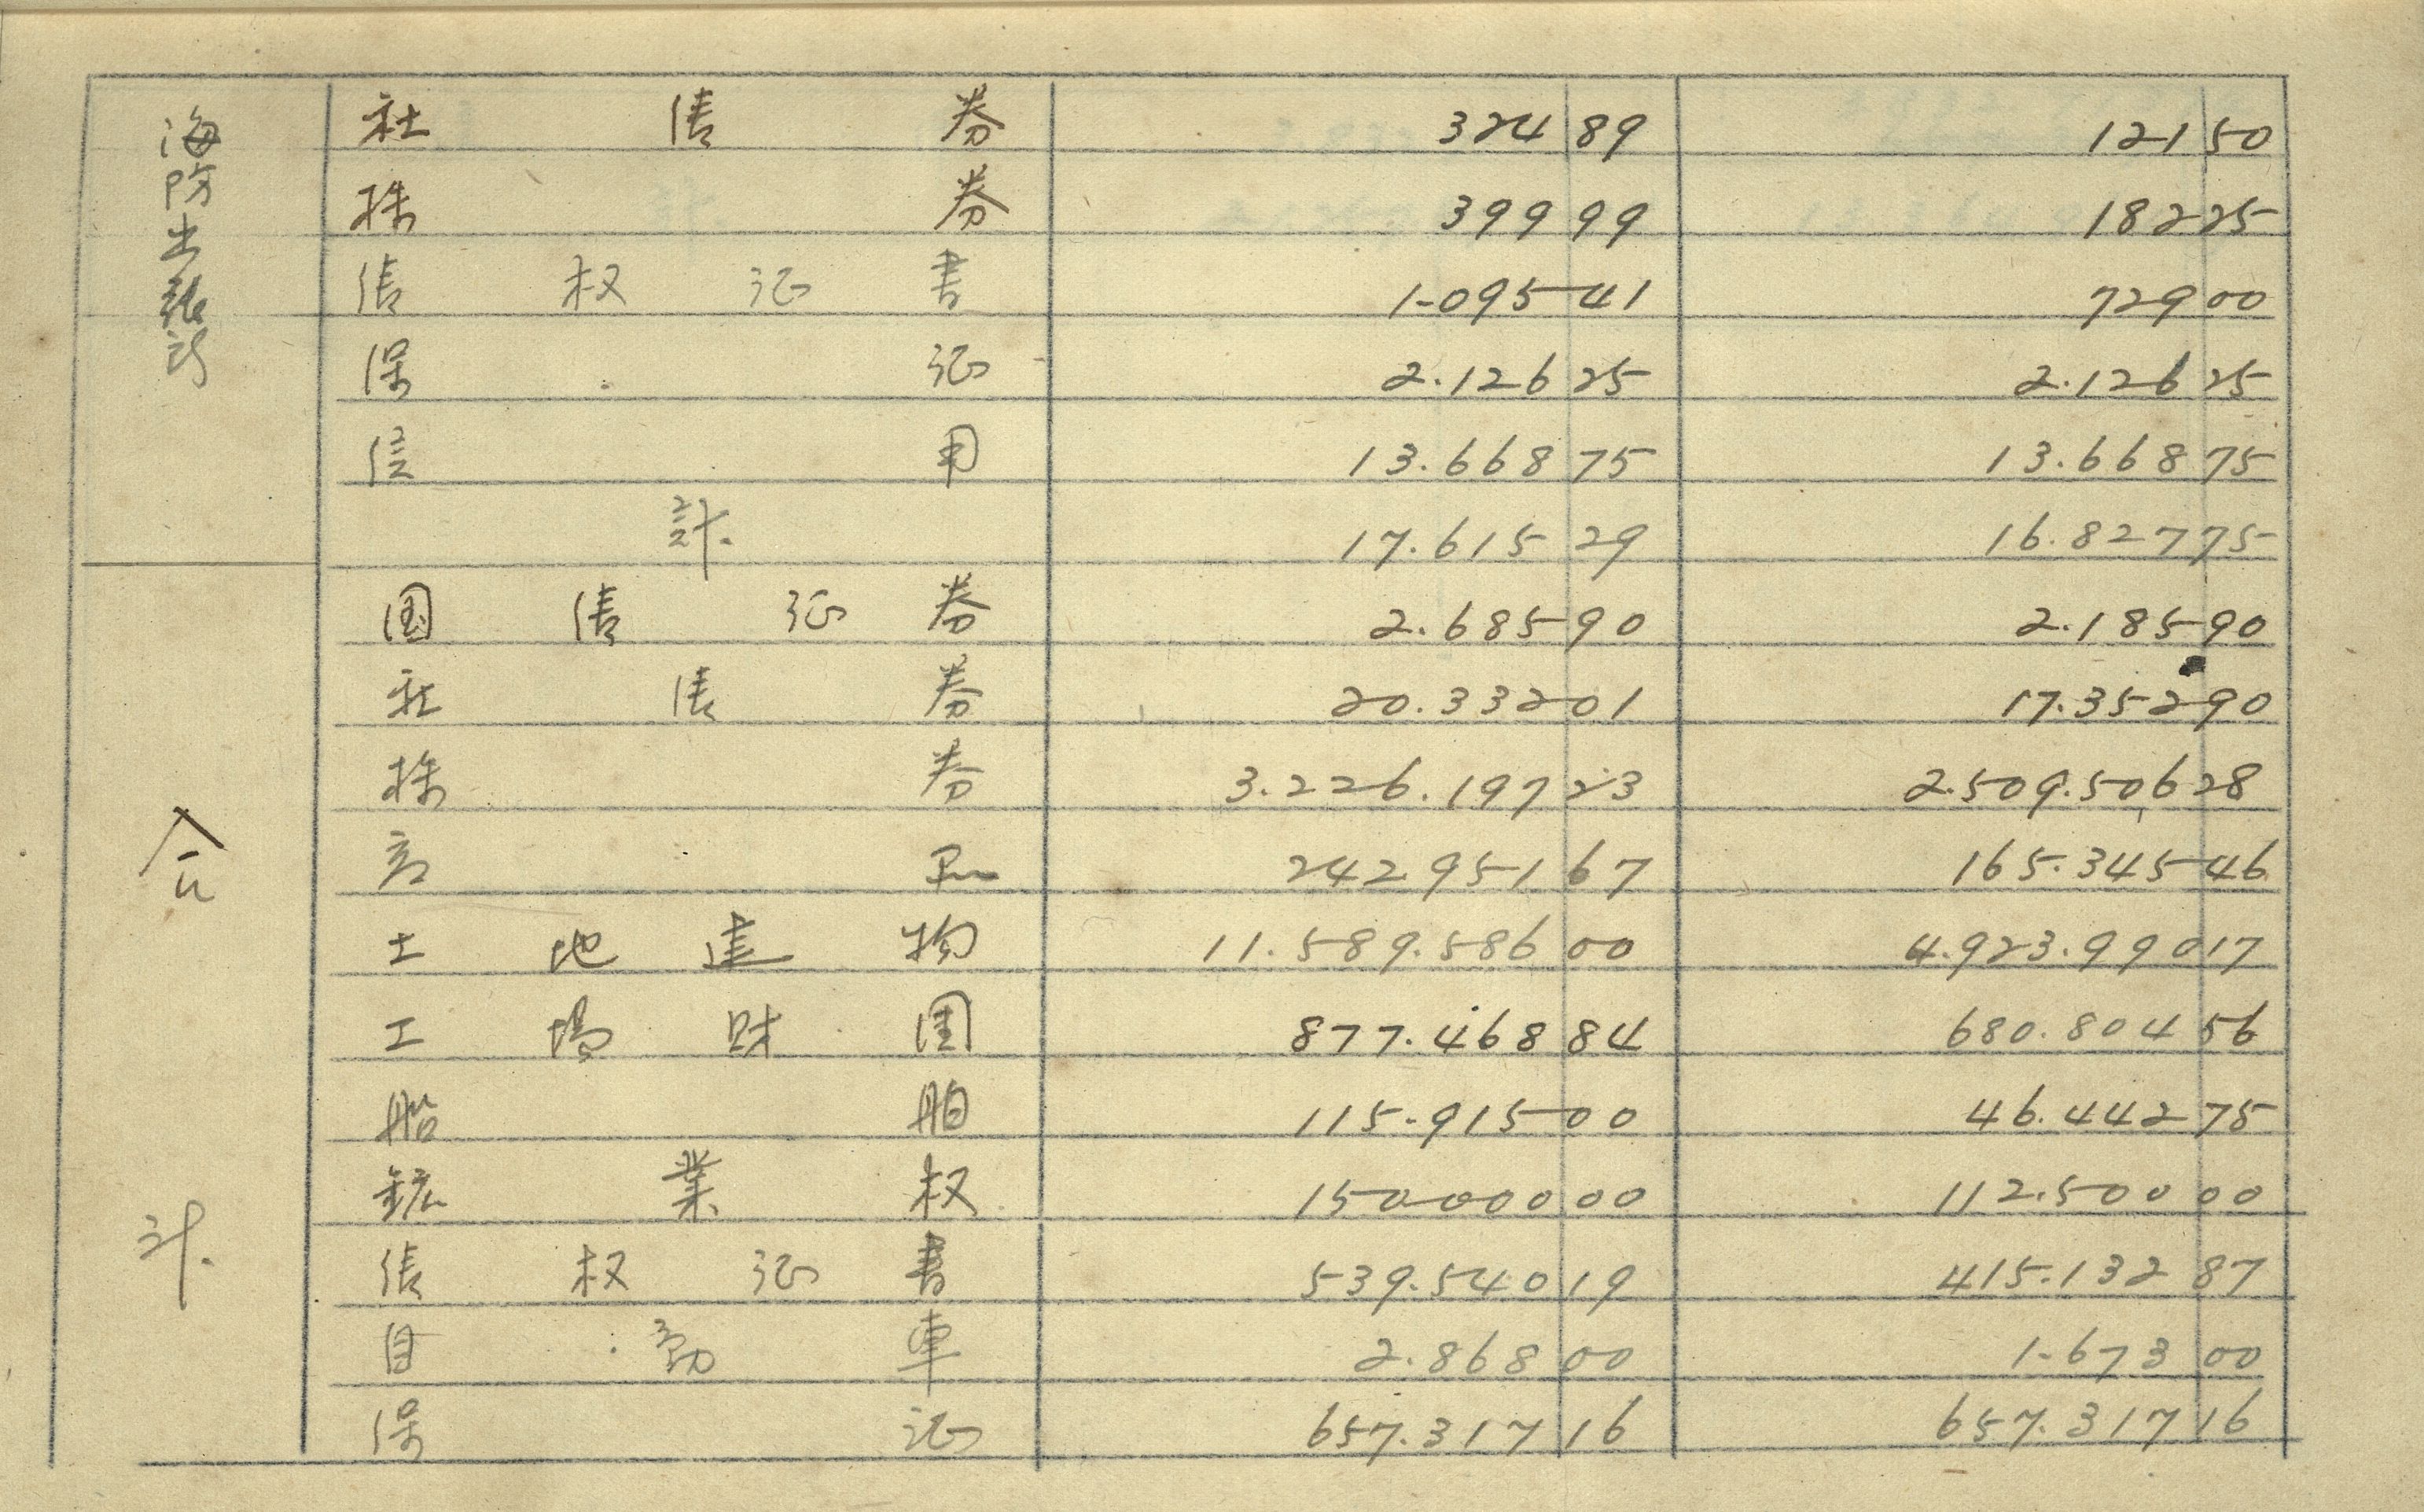 海防出張所
社債券 324 89 121 50
株券 399 99 182 25
債权証書 1.095 41 729 00
保証 2.126 25 2.126 25
信用 13.668 75 13.668 75
計. 17.615 29 16.827 75
合計.
国債証券 2.685 90 2.185 90
社債券 20.332 01 17.352 90
株券 3.226.197 23 2.509.506 28
商品 242 951 67 165.345 46
土地建物 11.589.586 00 4.923.990 17
工場財団 877.468 84 680.804 56
船舶 115.915 00 46.442 75
鉱業权 150000 00 112.500 00
債权証書 539.540 19 415.132 87
自動車 2.868 00 1.673 00
保証 657.317 16 657.317 16